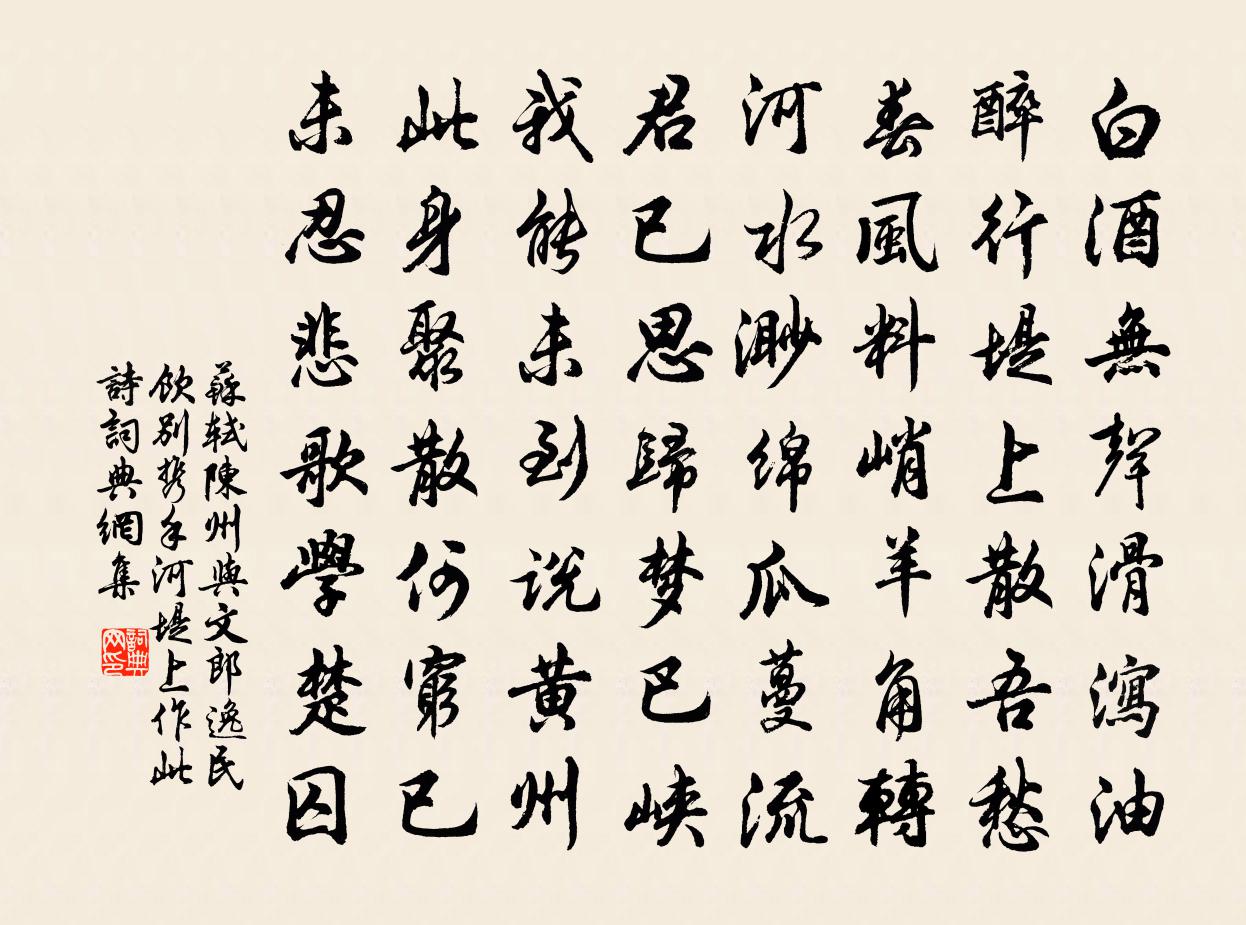 白酒無聲滑瀉油
醉行堤上散吾愁
春風料峭羊角轉
河水渺绵瓜蔓流
君已思歸梦巴峡
我能未到说黄州
此身聚散何窮已
未忍悲歌學楚囚
蘇軾陳州與文郎逸民
飲别携手河堤上作此
詩詞典網集
詞典网印